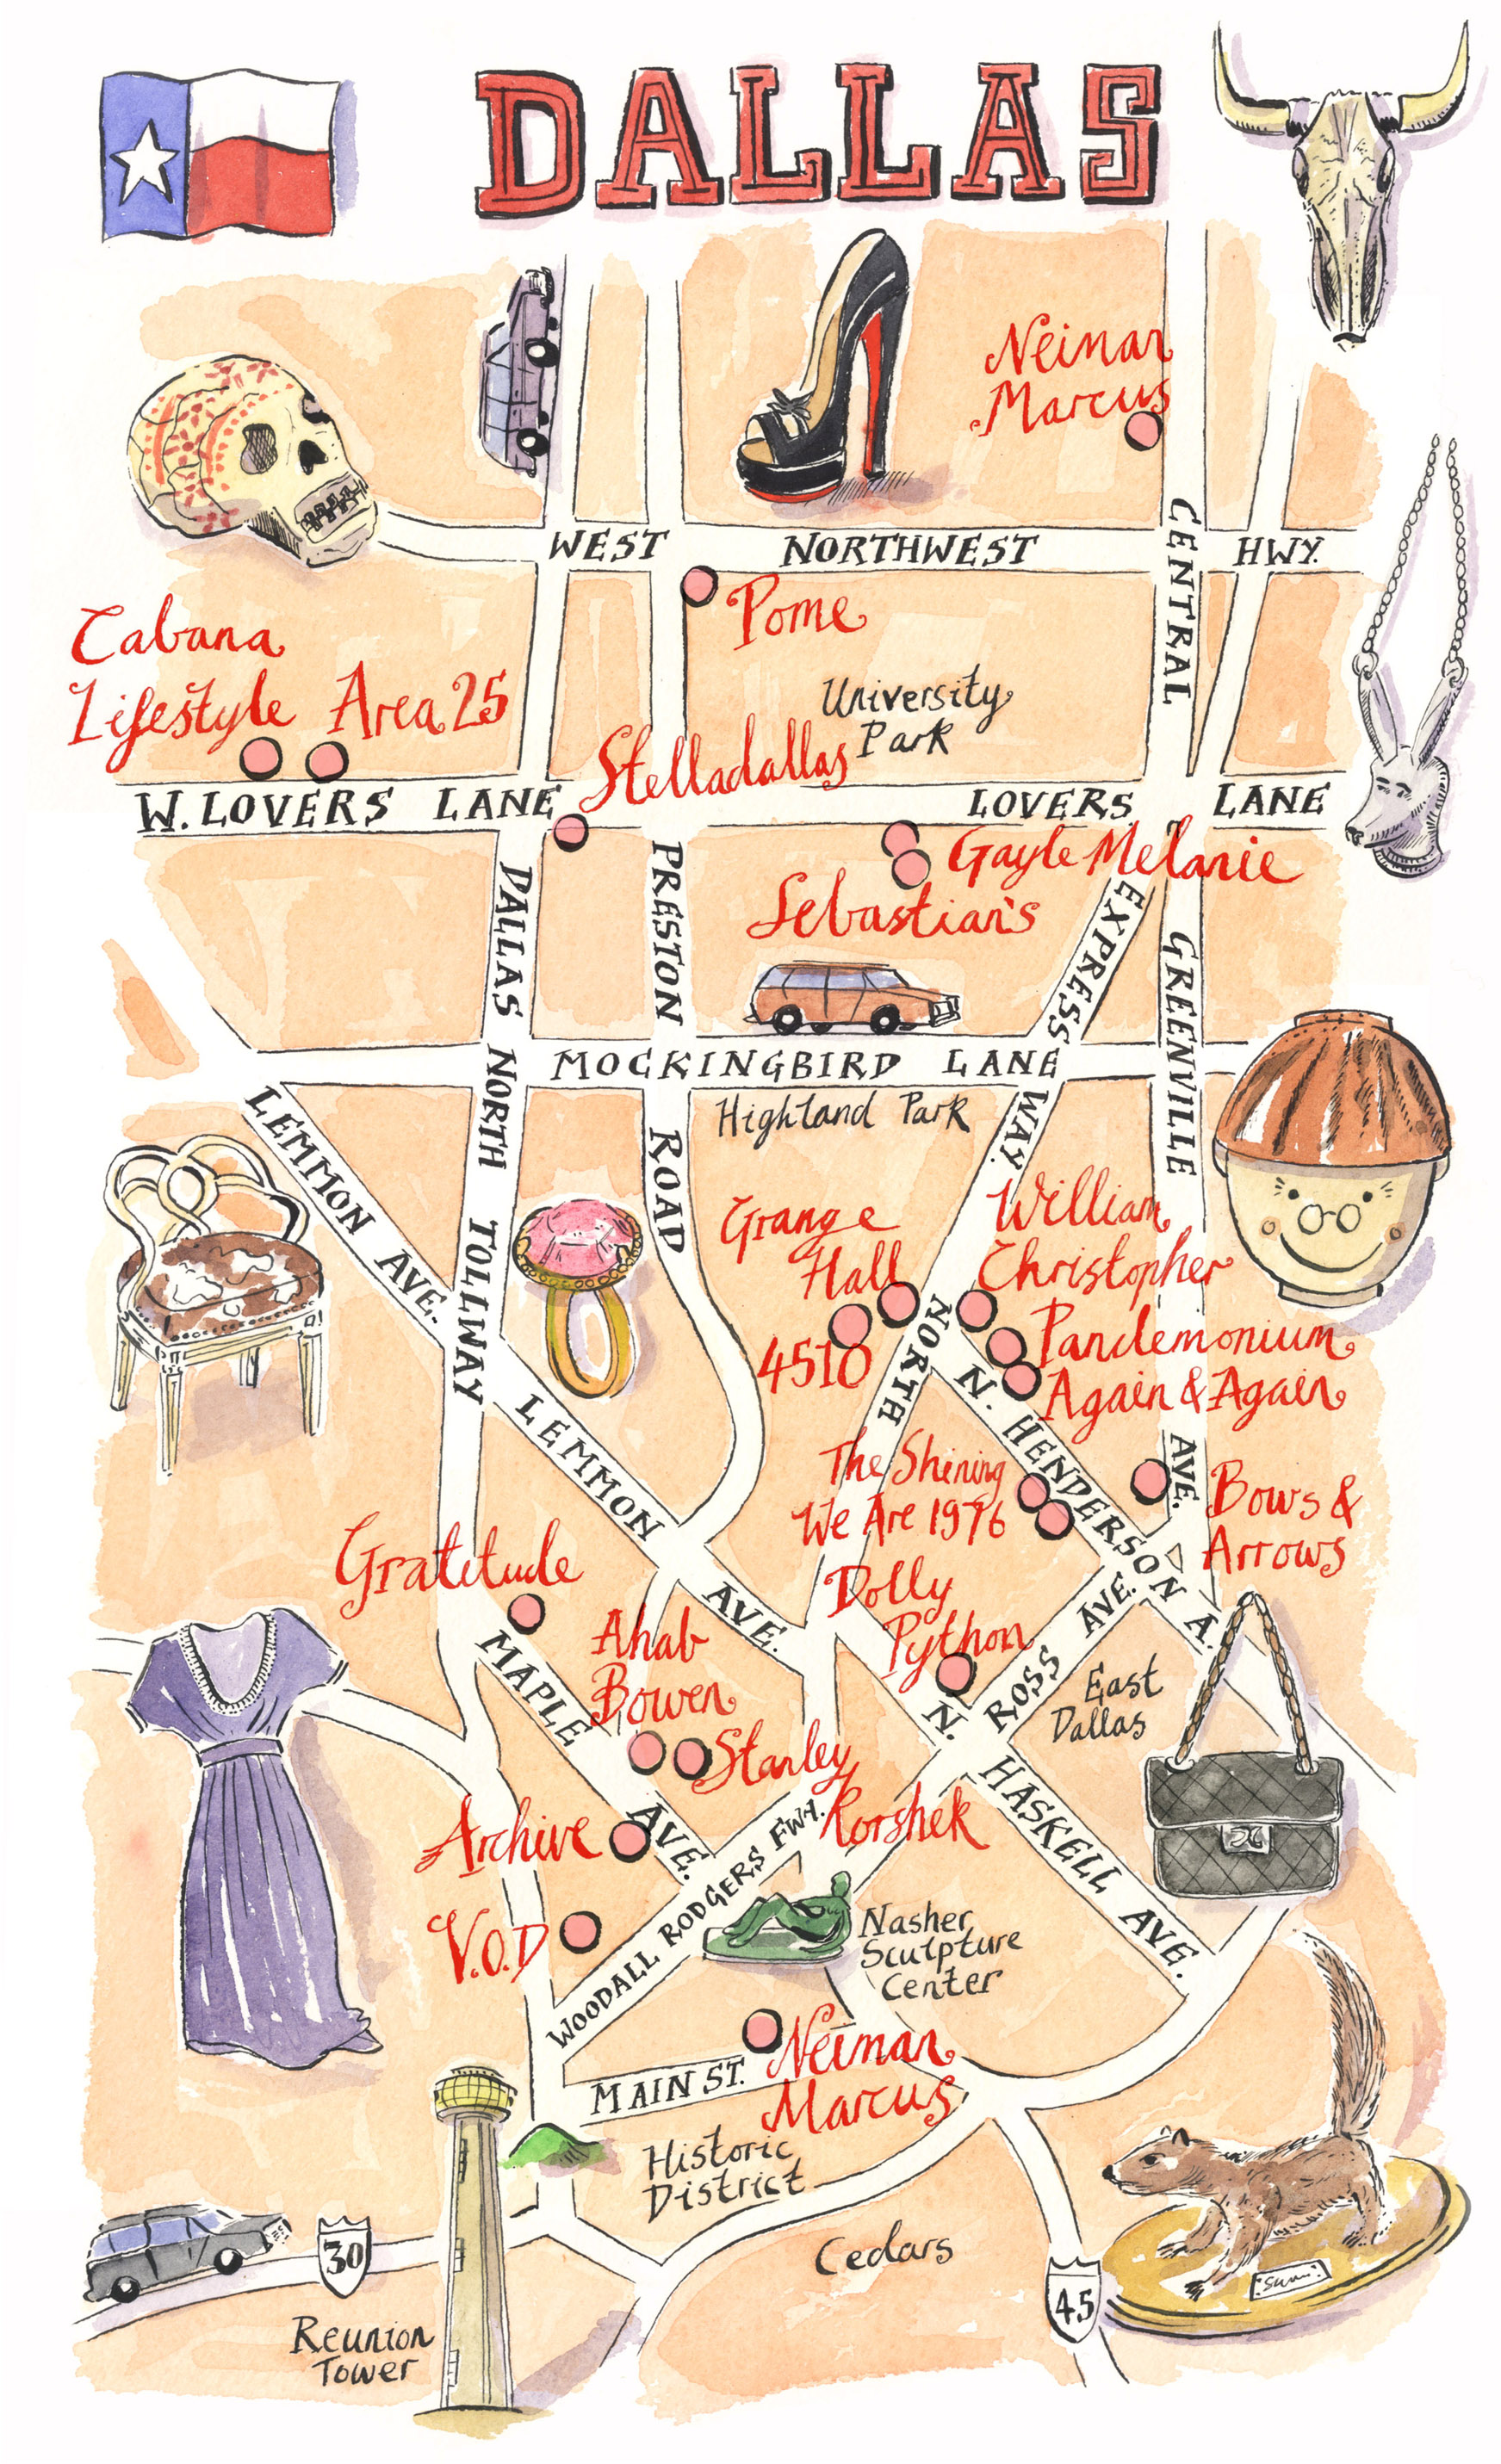 DALLAS
Neiman
Marcus
WEST NORTHWEST HWY.
CENTRAL
Pome
Cabana
Lifestyle
Area 25
University
Park
Stelladallas
W. LOVERS LANE
LOVERS LANE
Gayle Melanie
Sebastian's
DALLAS NORTH TOLLWAY
PRESTON ROAD
EXPRESS WAY.
GREENVILLE AVE.
MOCKINGBIRD LANE
Highland Park
LEMMON AVE.
Grange
Hall
4510
William
Christopher
Pandemonium
Again & Again
NORTH
N. HENDERSON A.
LEMMON AVE.
The Shining
We Are 1976
Bows &
Arrows
Gratitude
Dolly
Python
Ahab
Bowen
MAPLE AVE.
N. ROSS AVE.
East
Dallas
Stanley
Korshek
N. HASKELL AVE.
Archive
V.O.D
WOODALL RODGERS FWA.
Nasher
Sculpture
Center
Neiman
Marcus
MAIN ST.
Historic
District
Cedars
30
45
Reunion
Tower